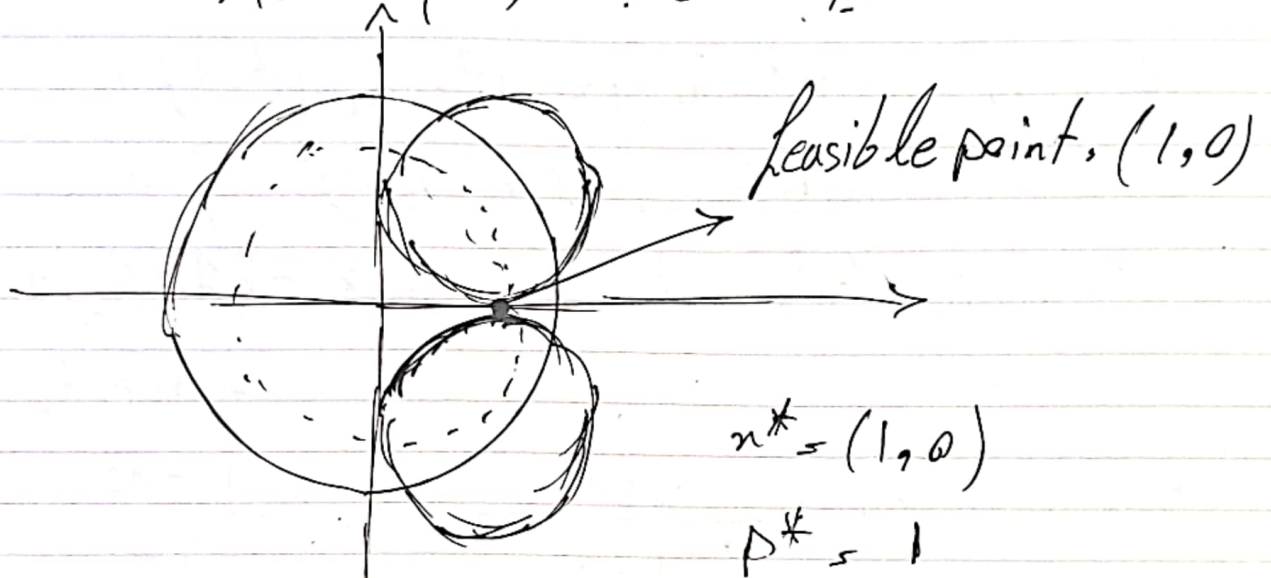 feasible point, (1,0)
x* = (1,0)
p* = 1